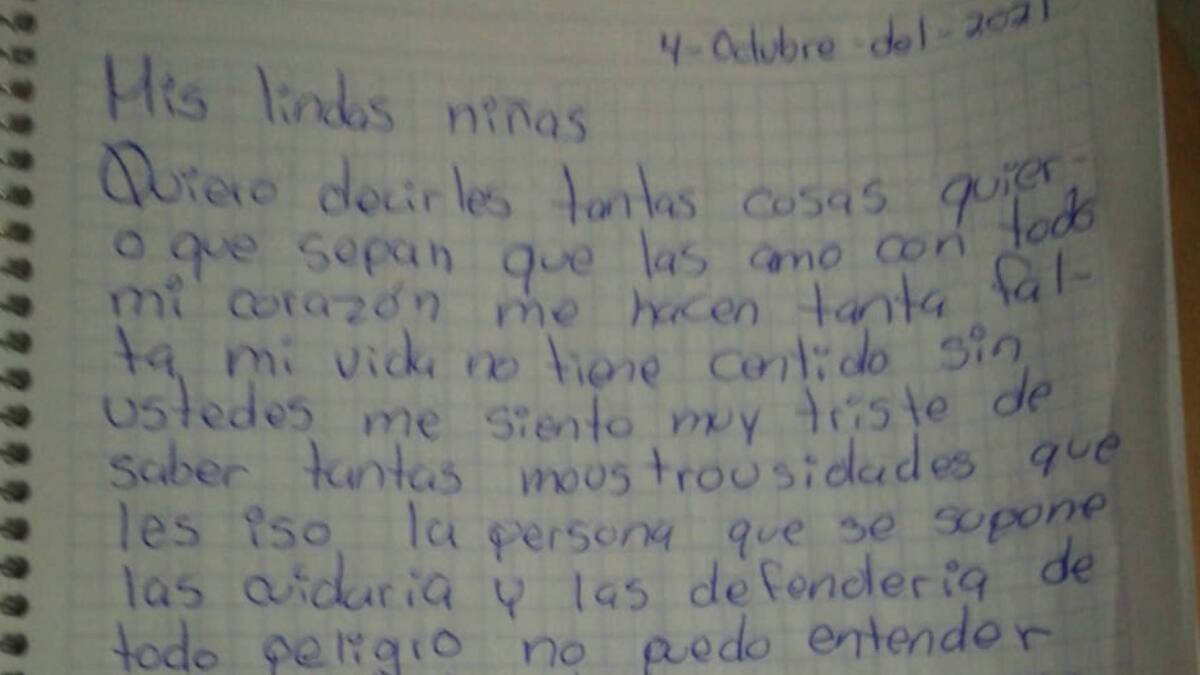 4-Octubre-del-2021
Mis lindas niñas
Quiero decirles tantas cosas quier-
o que sepan que las amo con todo
mi corazón me hacen tanta fal-
ta, mi vida no tiene centido sin
ustedes me siento muy triste de
saber tantas moustrousidades que
les iso, la persona que se supone
las cuidaria y las defenderia de
todo peligro no puedo entender